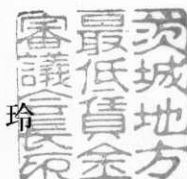 茨城地方
最低賃金
審議会長印
玲